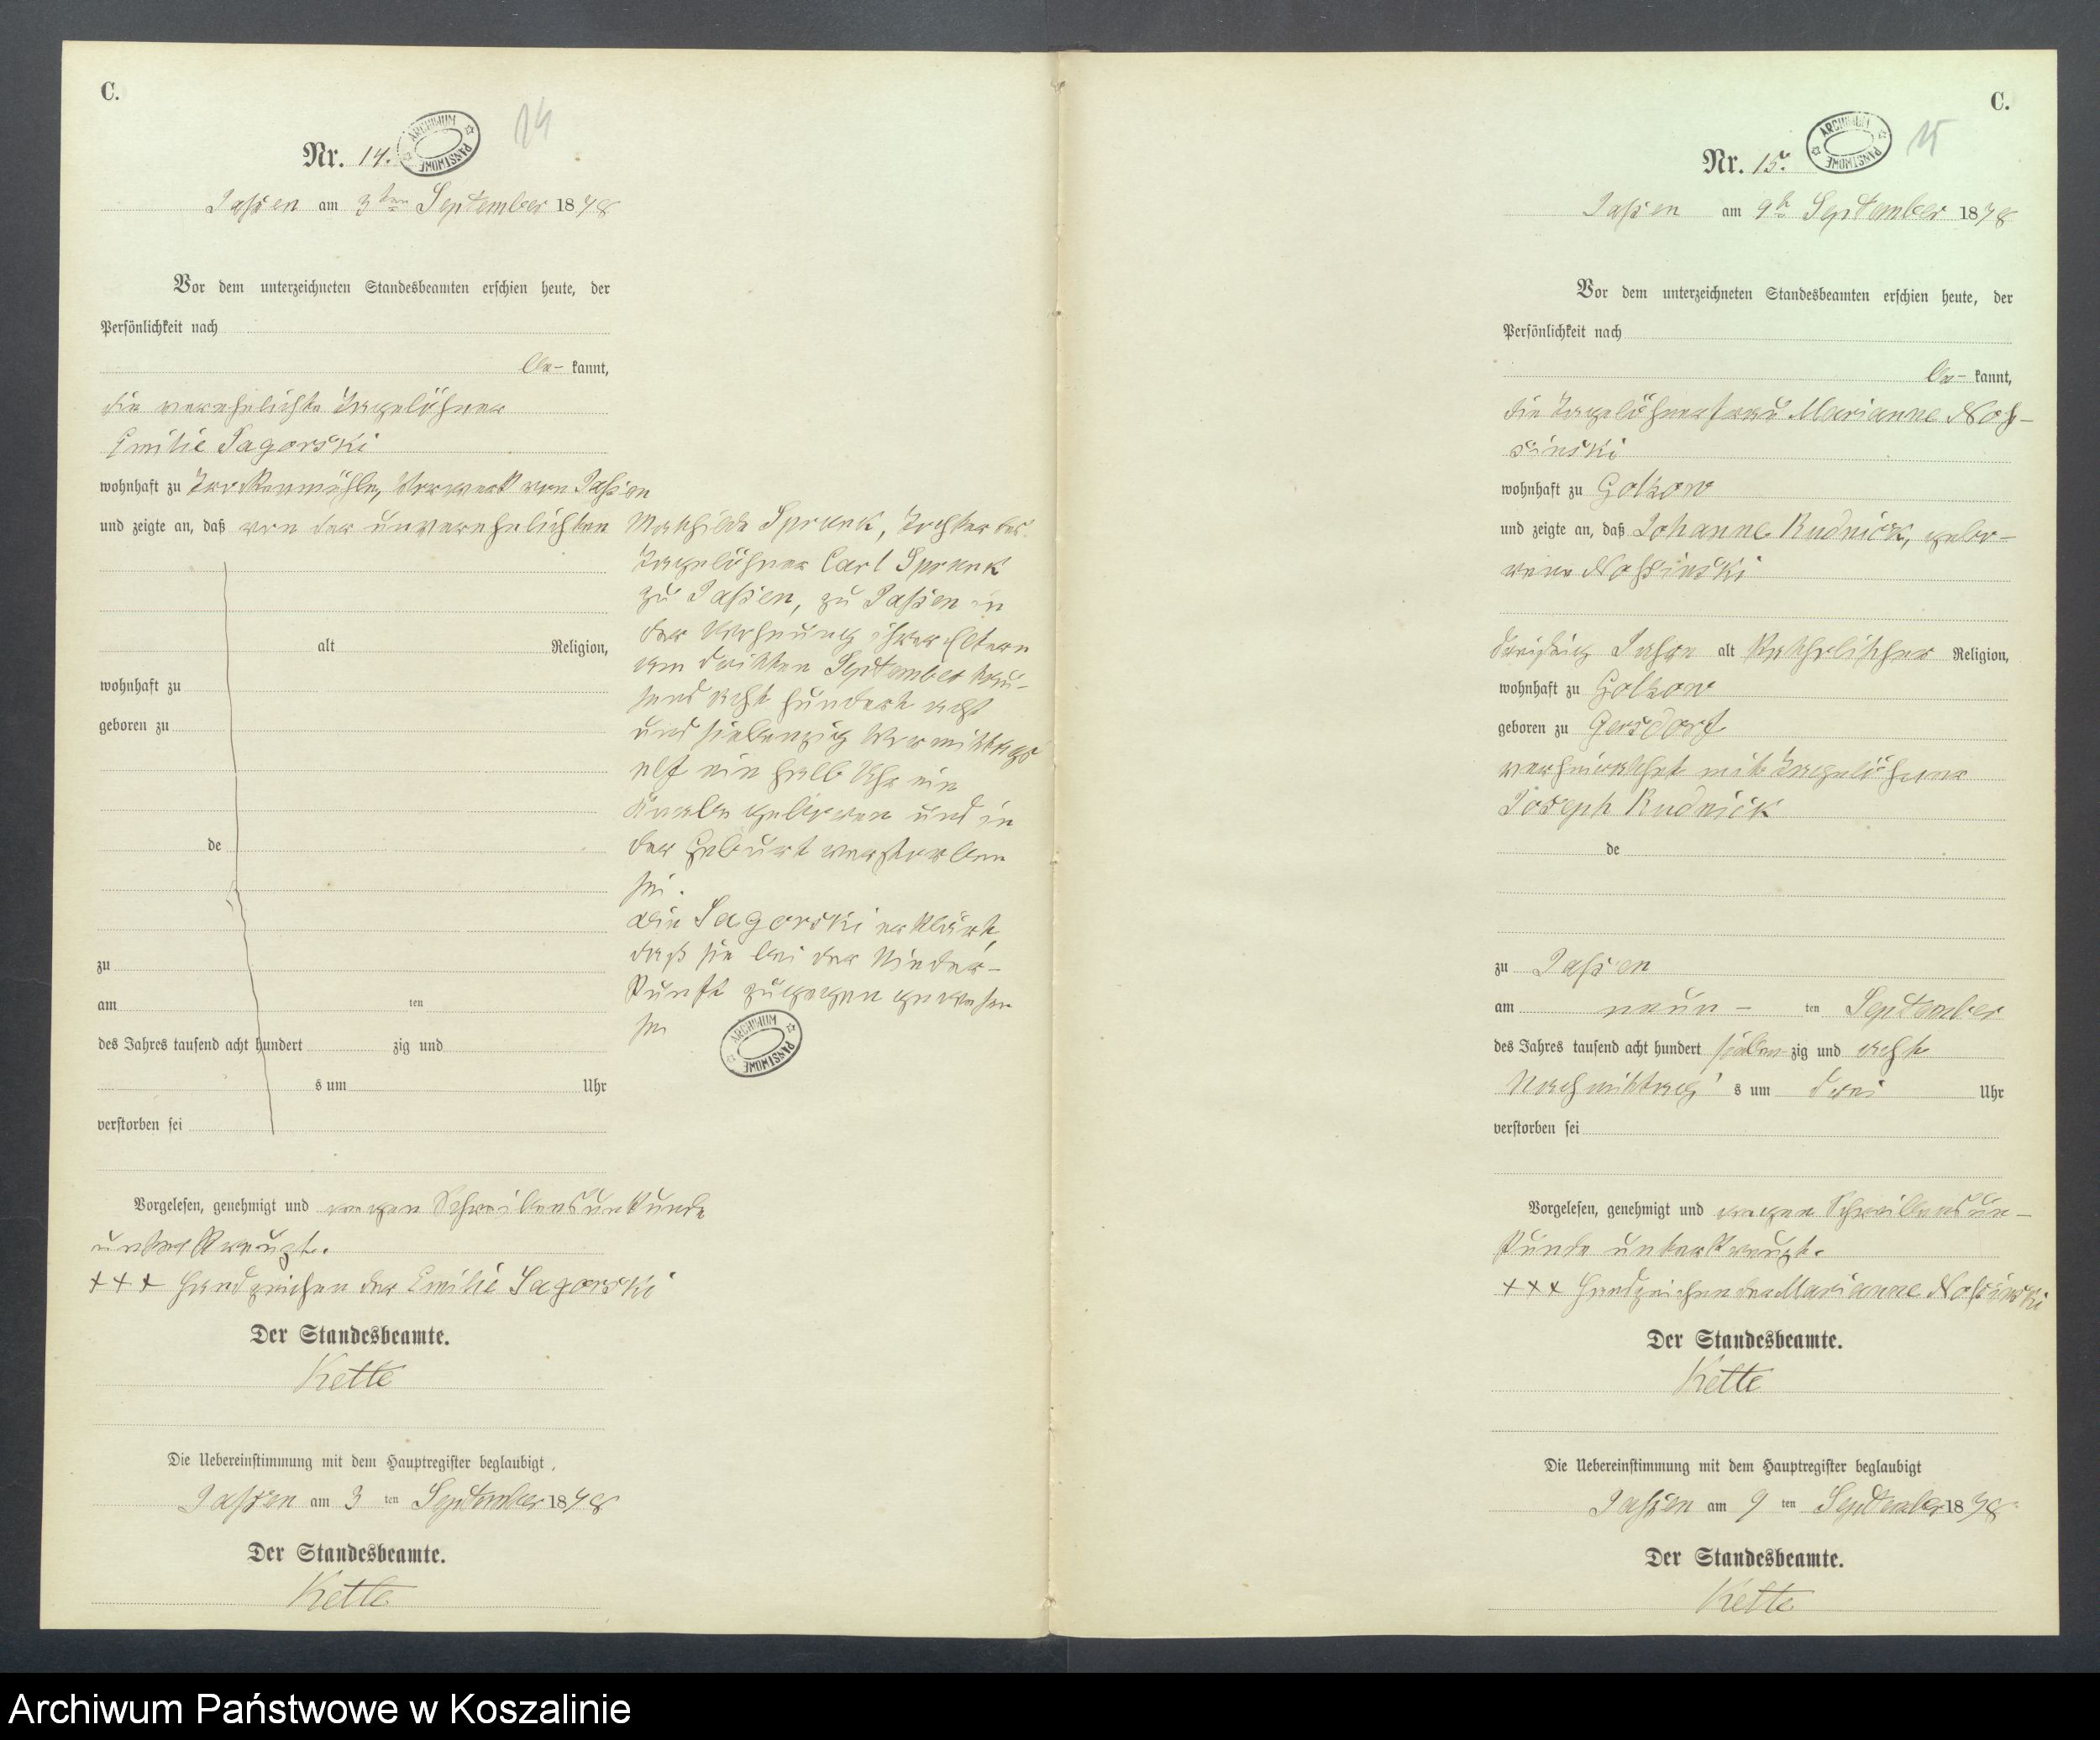 C.
Nr. 14.
14
ARCHIWUM PAŃSTWOWE
Jassen am 3ten September 1878
Vor dem unterzeichneten Standesbeamten erschien heute, der
Persönlichkeit nach
be- kannt,
die verehelichte Tagelöhner
Emilie Sagorski
wohnhaft zu Vorwerk von Jassen
und zeigte an, daß von der unverehelichten
Mathilde Sprunk, Tochter des
Tagelöhner Carl Sprunk
zu Jassen, zu Jassen in
der Wohnung ihrer Eltern
am dritten September tau-
send acht hundert acht
und siebenzig Vormittags
elf ein halb Uhr ein
Knabe geboren und in
der Geburt verstorben
sei.
Die Sagorski erklärt,
daß sie bei der Nieder-
kunft zugegen gewesen
sei
ARCHIWUM PAŃSTWOWE
alt Religion,
wohnhaft zu
geboren zu
de
zu
am ten
des Jahres tausend acht hundert zig und
s um Uhr
verstorben sei
Vorgelesen, genehmigt und wegen Schreibensunkunde
unterkreuzt.
+++ Handzeichen der Emilie Sagorski
Der Standesbeamte.
Kette
Die Uebereinstimmung mit dem Hauptregister beglaubigt,
Jassen am 3 ten September 1878
Der Standesbeamte.
Kette
C.
Nr. 15.
15
ARCHIWUM PAŃSTWOWE
Jassen am 9t September 1878
Vor dem unterzeichneten Standesbeamten erschien heute, der
Persönlichkeit nach
be- kannt,
die Tagelöhnerfrau Marianne Nos-
sinski
wohnhaft zu Golzow
und zeigte an, daß Johanne Rudnick, gebo-
rene Nossinski
dreißig Jahre alt katholischer Religion,
wohnhaft zu Golzow
geboren zu Gersdorf
verheirathet mit Tagelöhner
Joseph Rudnick
de
zu Jassen
am neun- ten September
des Jahres tausend acht hundert sieben zig und acht
Nachmittag's um drei Uhr
verstorben sei
Vorgelesen, genehmigt und wegen Schreibensun-
kunde unterkreuzt.
+++ Handzeichen der Marianne Nossinski
Der Standesbeamte.
Kette
Die Uebereinstimmung mit dem Hauptregister beglaubigt
Jassen am 9 ten September 1878
Der Standesbeamte.
Kette
Archiwum Państwowe w Koszalinie